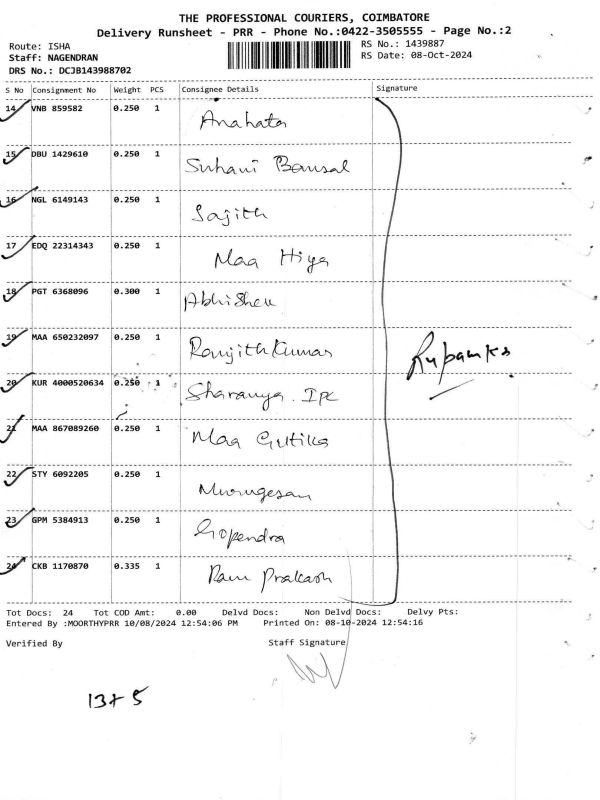 THE PROFESSIONAL COURIERS, COIMBATORE
Delivery Runsheet - PRR - Phone No.:0422-3505555 - Page No.:2
Route: ISHA RS No.: 1439887
Staff: NAGENDRAN RS Date: 08-Oct-2024
DRS No.: DCJB143988702
S No Consignment No Weight PCS Consignee Details Signature
14 VNB 859582 0.250 1 Anahata
15 DBU 1429610 0.250 1 Suhani Bansal
16 NGL 6149143 0.250 1 Sajith
17 EDQ 22314343 0.250 1 Maa Hiya
18 PGT 6368096 0.300 1 Abhishek
19 MAA 650232097 0.250 1 Ranjith Kumar
20 KUR 4000520634 0.250 1 Sharanya. IPC
21 MAA 867089260 0.250 1 Maa Gutika
22 STY 6092205 0.250 1 Murugesan
23 GPM 5384913 0.250 1 Gopendra
24 CKB 1170870 0.335 1 Ram Prakash
Tot Docs: 24 Tot COD Amt: 0.00 Delvd Docs: Non Delvd Docs: Delvy Pts:
Entered By :MOORTHYPRR 10/08/2024 12:54:06 PM Printed On: 08-10-2024 12:54:16
Verified By Staff Signature
13+5